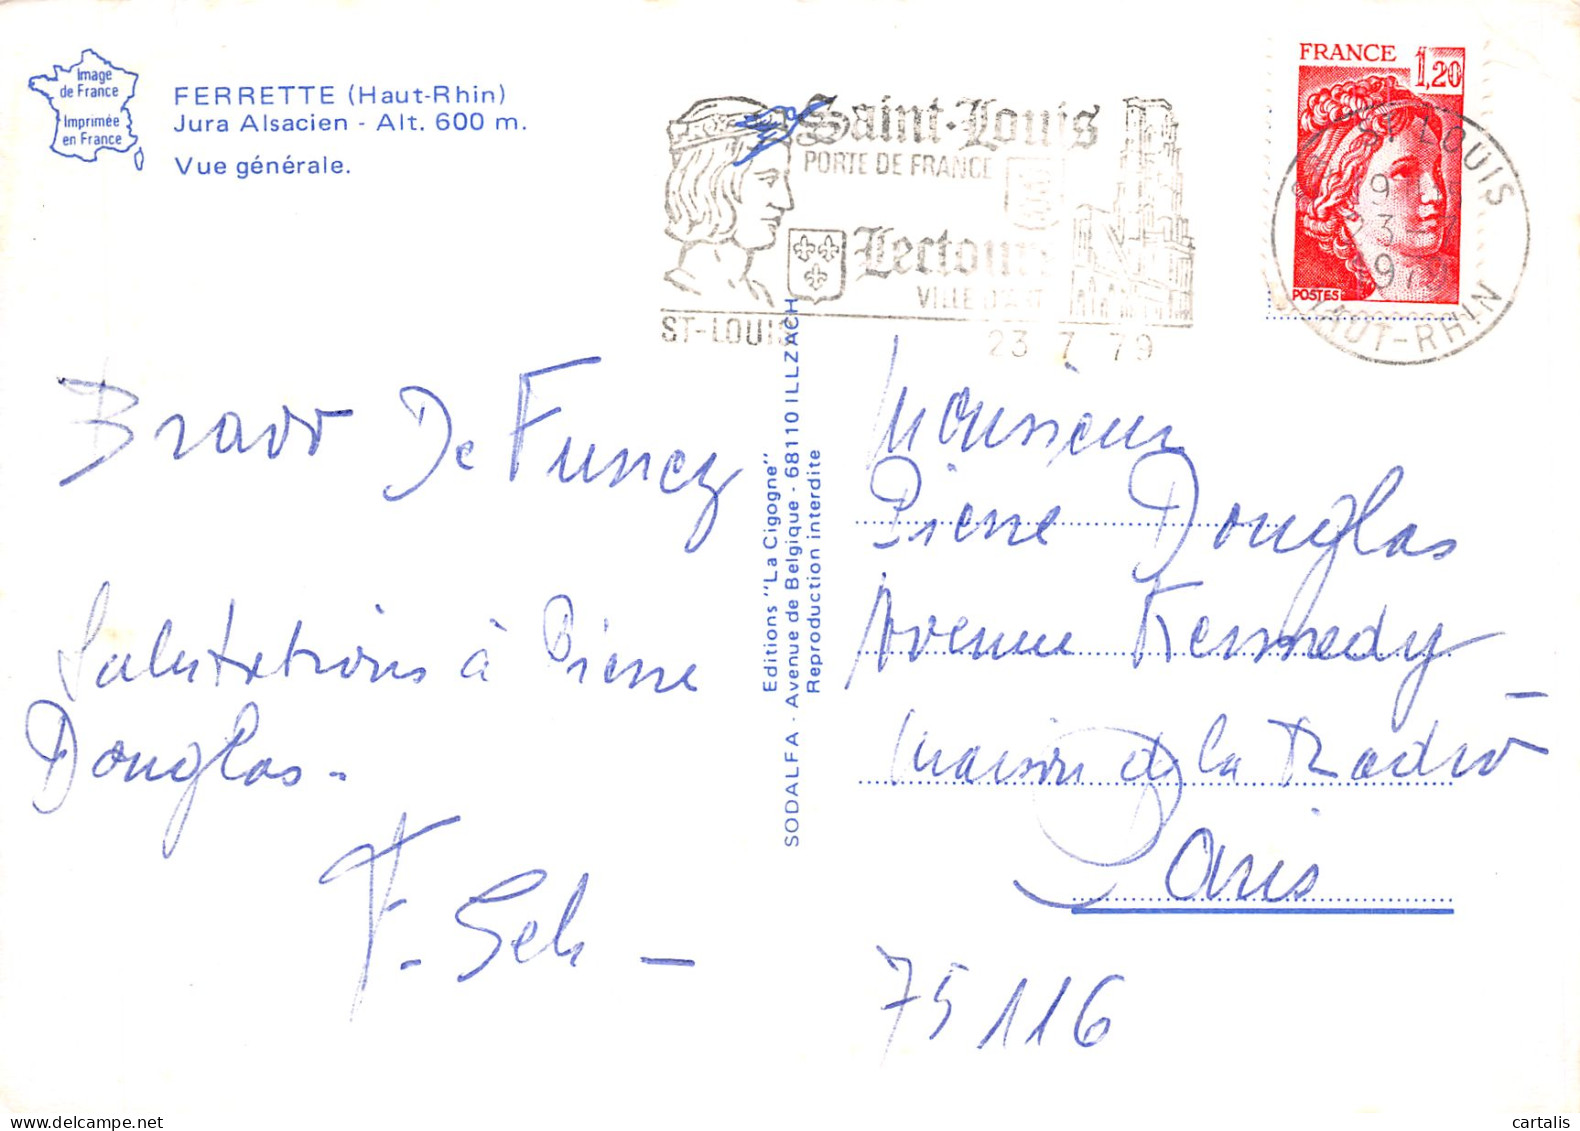 Image
de France
Imprimée
en France
FERRETTE (Haut-Rhin)
Jura Alsacien - Alt. 600 m.
Vue générale.
Saint-Louis
PORTE DE FRANCE
Lectoure
VILLE D'ART
ST-LOUIS
23 7 79
FRANCE 1,20
POSTES
ST LOUIS
HAUT-RHIN
Bravo De Funez
Salutations à Pierre
Douglas-
F. Seh -
Editions "La Cigogne"
SODALFA - Avenue de Belgique - 68110 ILLZACH
Reproduction interdite
Monsieur
Pierre Douglas
Avenue Kennedy -
Maison de la Radio
Paris
75116
cartalis